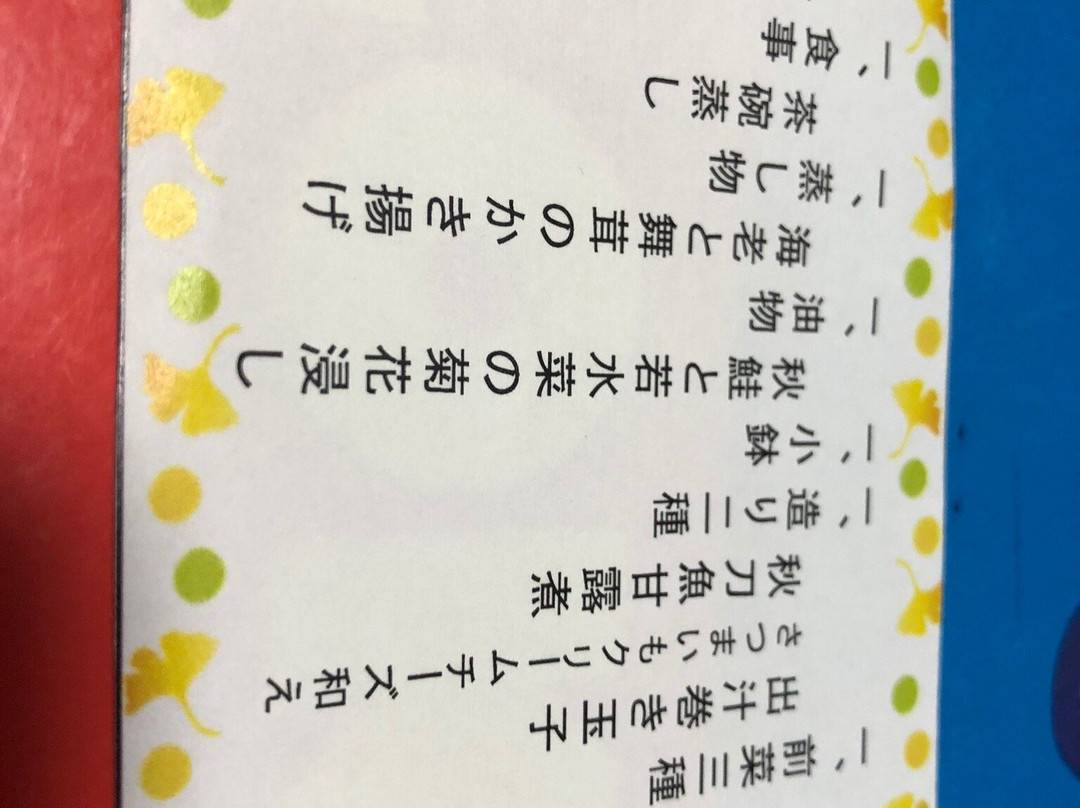 一、前菜三種
出汁巻き玉子
さつまいもクリームチーズ和え
秋刀魚甘露煮
一、造り二種
一、小鉢
秋鮭と若水菜の菊花浸し
一、油物
海老と舞茸のかき揚げ
一、蒸し物
茶碗蒸し
一、食事